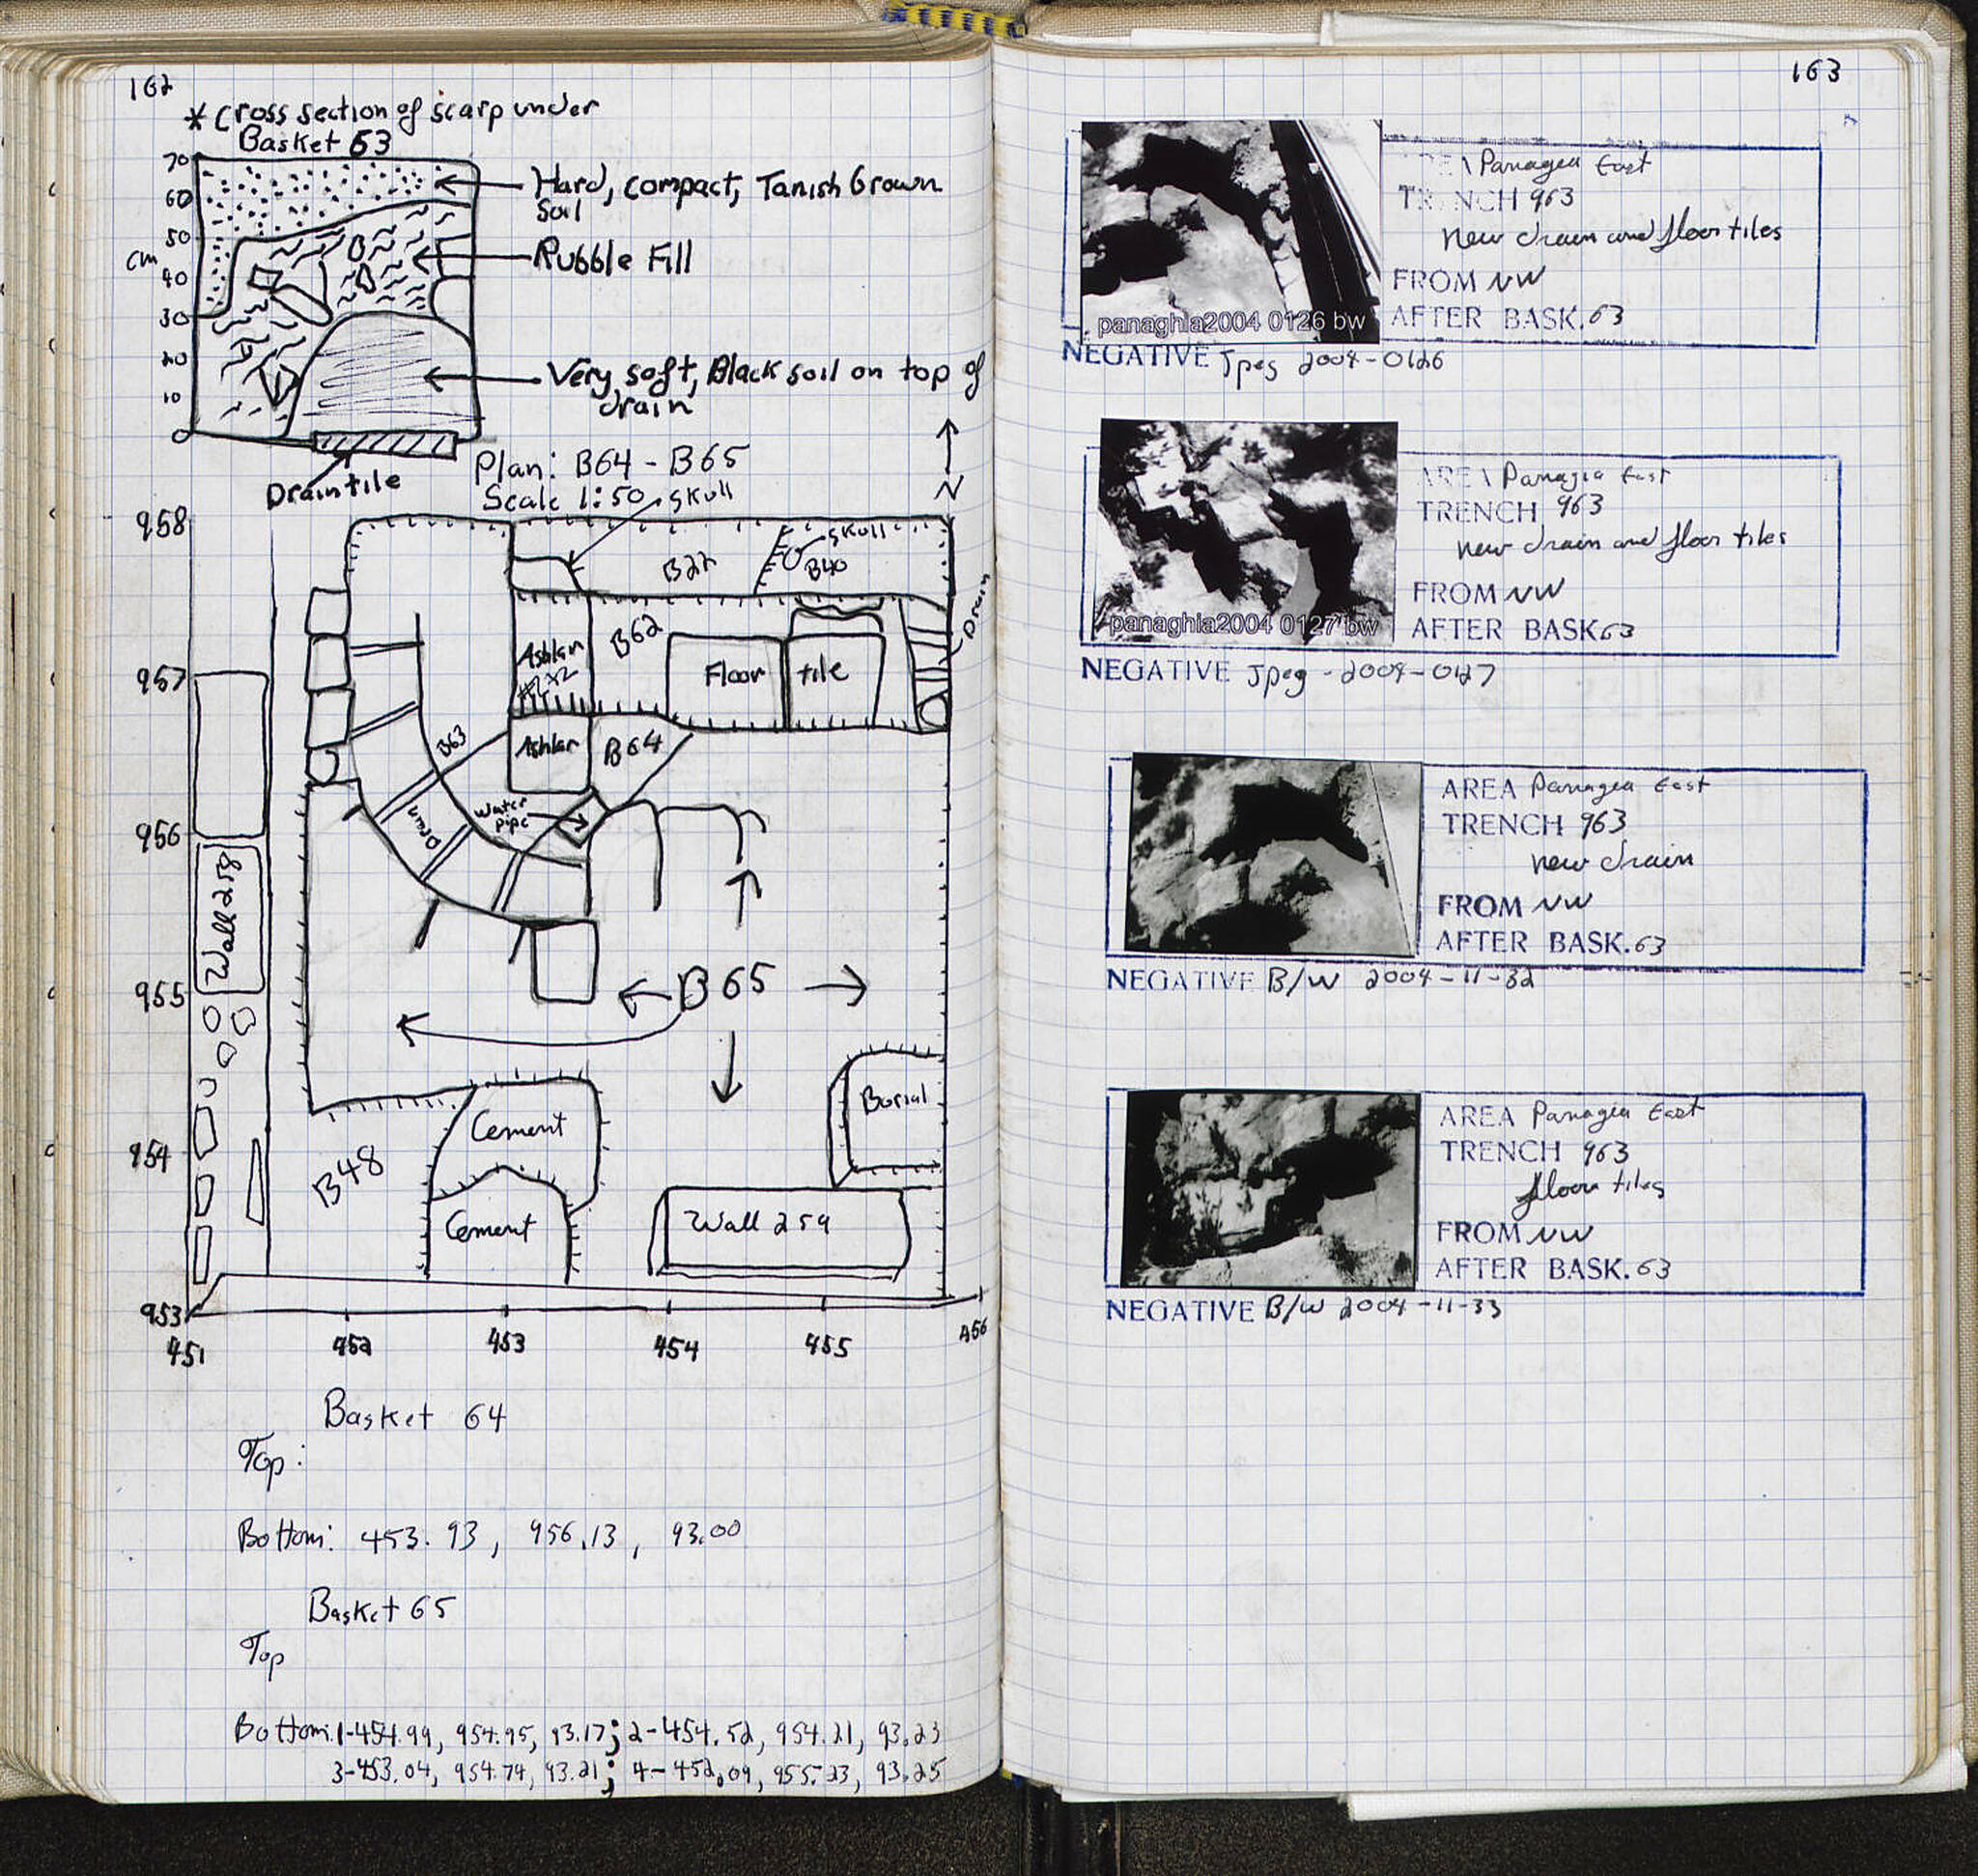 162
* Cross section of scarp under
Basket 63
70
60
50
cm
40
30
20
10
0
Hard, compact, Tanish Brown
Soil
Rubble Fill
Very soft, Black soil on top of
drain
Drain tile
Plan: B64 - B65
Scale 1:50
skull
N
958
957
956
955
954
953
451
452
453
454
455
456
B22
skull
B40
Drain
Ashlar
#2
B62
Floor
tile
Ashlar
B64
B63
Water
pipe
Drain
Wall 258
B65
Burial
Cement
Cement
B48
Wall 259
Basket 64
Top:
Bottom: 453.93, 956.13, 93.00
Basket 65
Top
Bottom: 1-454.99, 954.95, 93.17; 2-454.52, 954.21, 93.23
3-453.04, 954.74, 93.21; 4-452.09, 955.23, 93.25
163
AREA Panagea East
TRENCH 963
new drain and floor tiles
FROM NW
AFTER BASK. 63
panaghia2004 0126 bw
NEGATIVE Jpeg 2004-0126
AREA Panagia East
TRENCH 963
new drain and floor tiles
FROM NW
AFTER BASK 63
panaghia2004 0127 bw
NEGATIVE Jpeg - 2004-0127
AREA Panagea East
TRENCH 963
new drain
FROM NW
AFTER BASK. 63
NEGATIVE B/W 2004-11-32
AREA Panagia East
TRENCH 963
floor tiles
FROM NW
AFTER BASK. 63
NEGATIVE B/W 2004-11-33